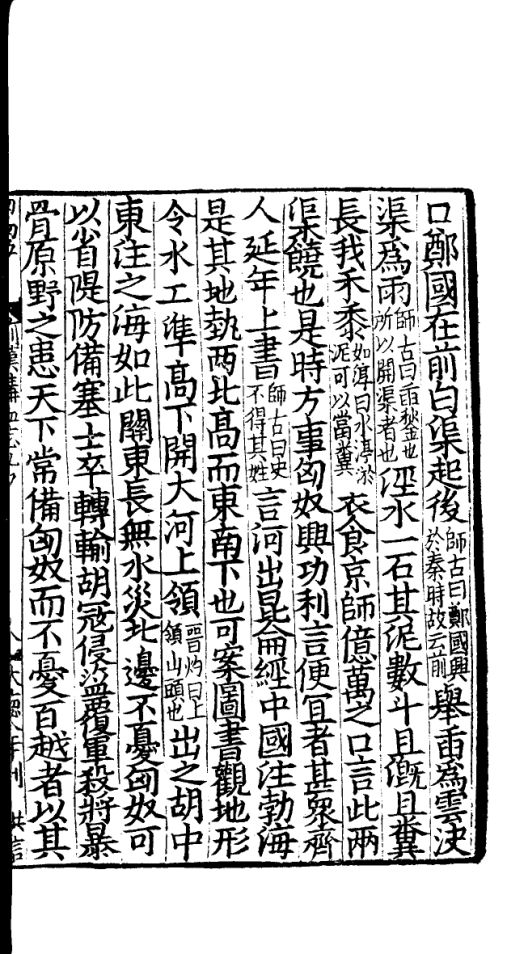 口鄭國在前白渠起後師古曰鄭國興於秦時故云前舉臿爲雲決
渠爲雨師古曰臿鍫也所以開渠者也涇水一石其泥數斗且溉且糞
長我禾黍如淳曰水渟淤泥可以當糞衣食京師億萬之口言此兩
渠饒也是時方事匈奴興功利言便宜者甚衆齊
人延年上書師古曰史不得其姓言河出昆侖經中國注勃海
是其地埶西北高而東南下也可案圖書觀地形
令水工準高下開大河上領晉灼曰上領山頭也出之胡中
東注之海如此關東長無水災北邊不憂匈奴可
以省隄防備塞士卒轉輸胡寇侵盜覆軍殺將暴
骨原野之患天下常備匈奴而不憂百越者以其